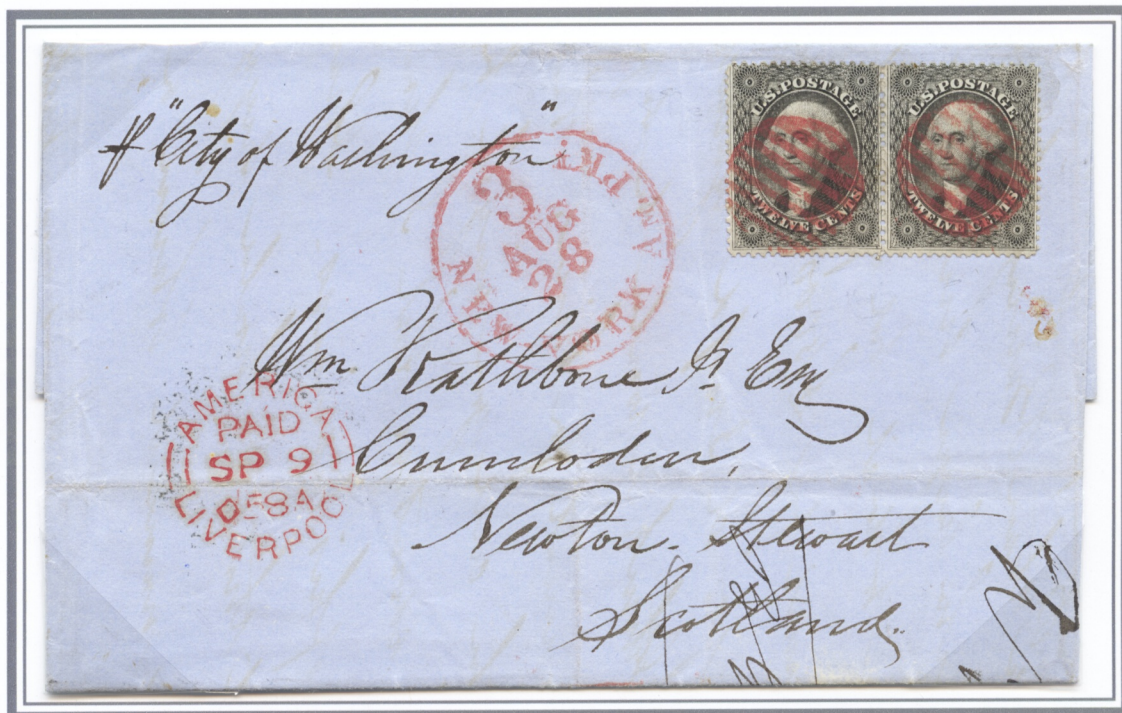 U.S. POSTAGE U.S. POSTAGE
TWELVE CENTS TWELVE CENTS
p "City of Washington"
NEW YORK AM. PKT
3
AUG
28
Wm Rathbone Jr Esq
Cumloden,
Newton-Stewart
Scotland.
AMERICA
PAID
SP 9
58
LIVERPOOL